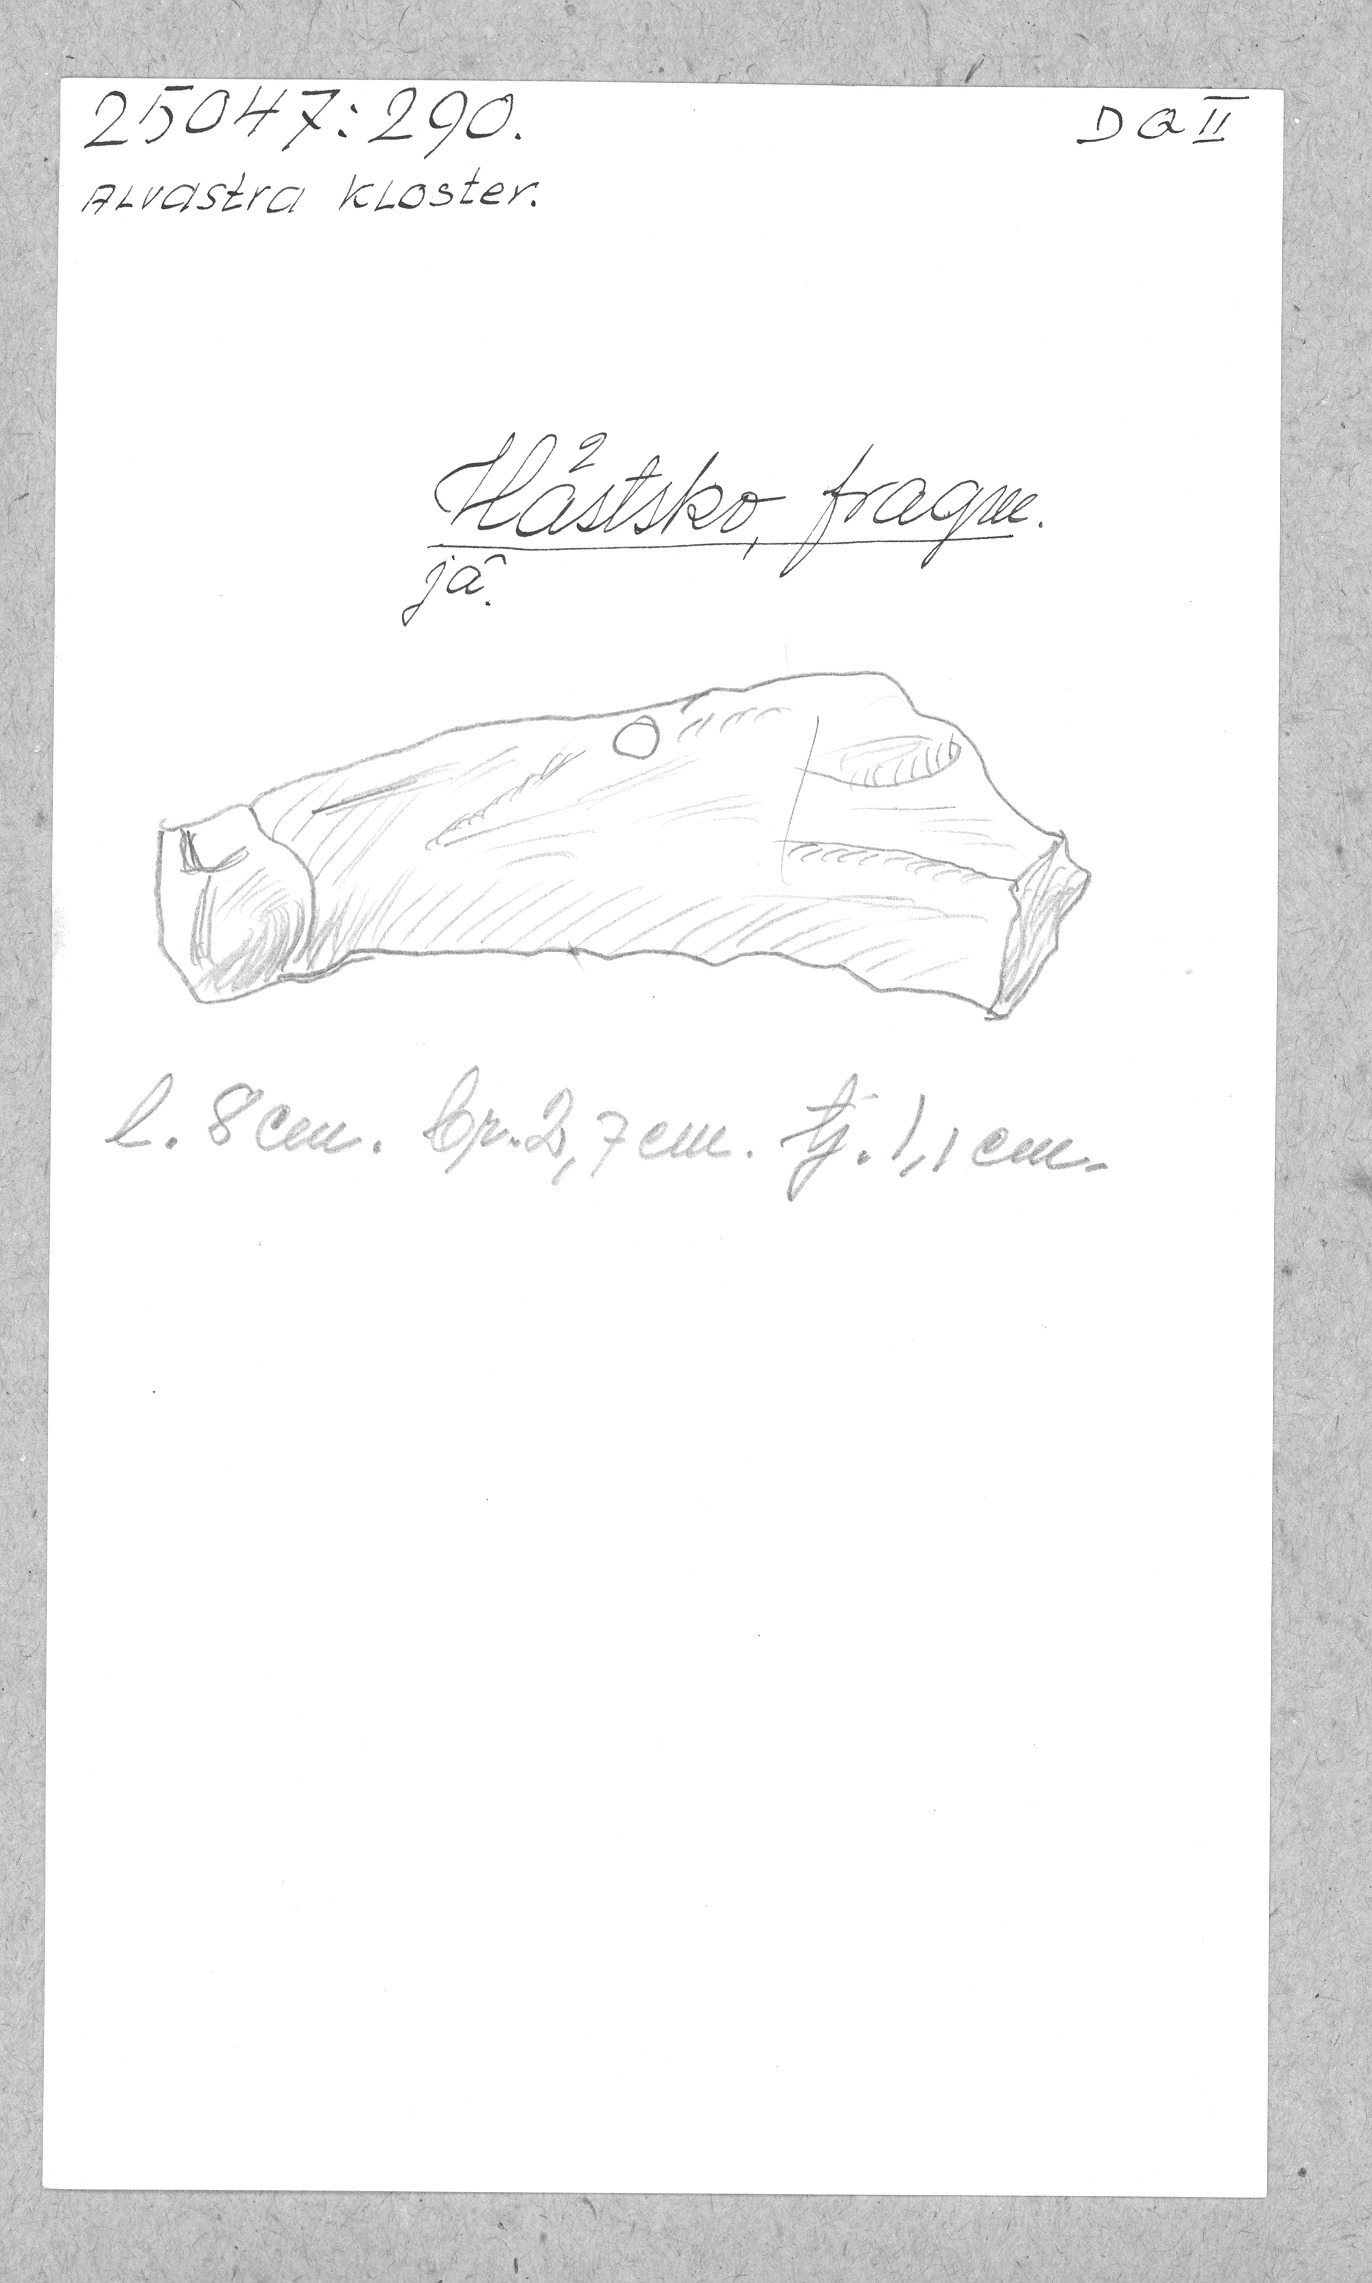 25047:290. DQII
Alvastra kloster.
Hästsko, fragm.
jä.
l. 8 cm. br. 2,7 cm. tj. 1,1 cm.